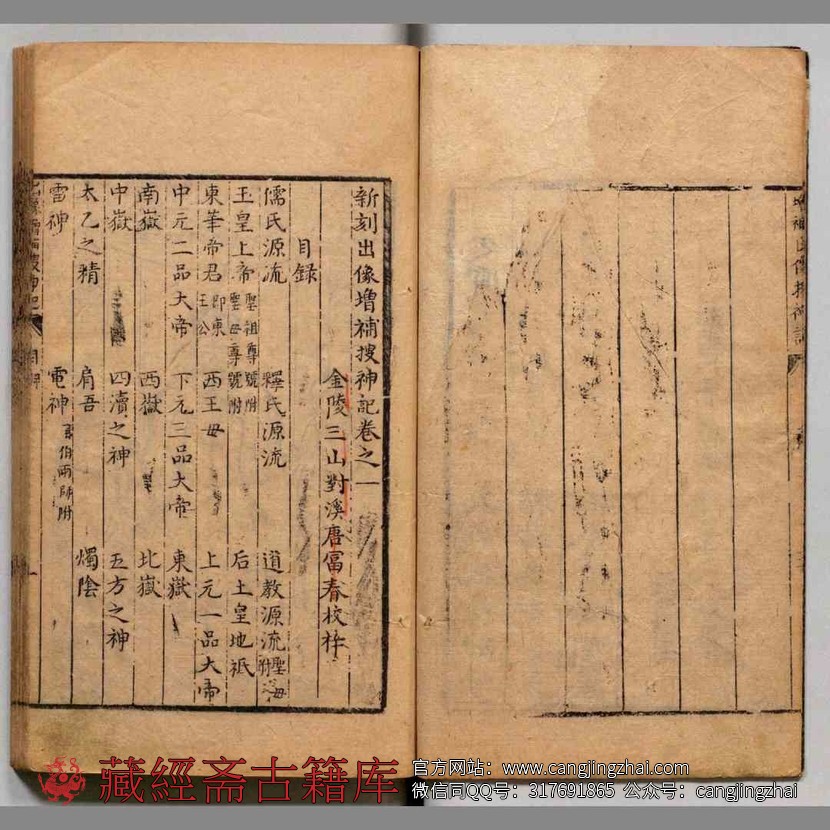 新刻出像增補搜神記卷之一
金陵三山對溪唐富春校梓
目錄
儒氏源流 釋氏源流 道教源流聖母附
玉皇上帝聖祖尊號附聖母尊號附 后土皇地祇
東華帝君即東王公 西王母 上元一品大帝
中元二品大帝 下元三品大帝 東嶽
南嶽 西嶽 北嶽
中嶽 四瀆之神 五方之神
太乙之精 肩吾 燭陰
雷神 電神風伯雨師附
藏經斋古籍库
官方网站：www.cangjingzhai.com
微信同QQ号：317691865 公众号：cangjingzhai